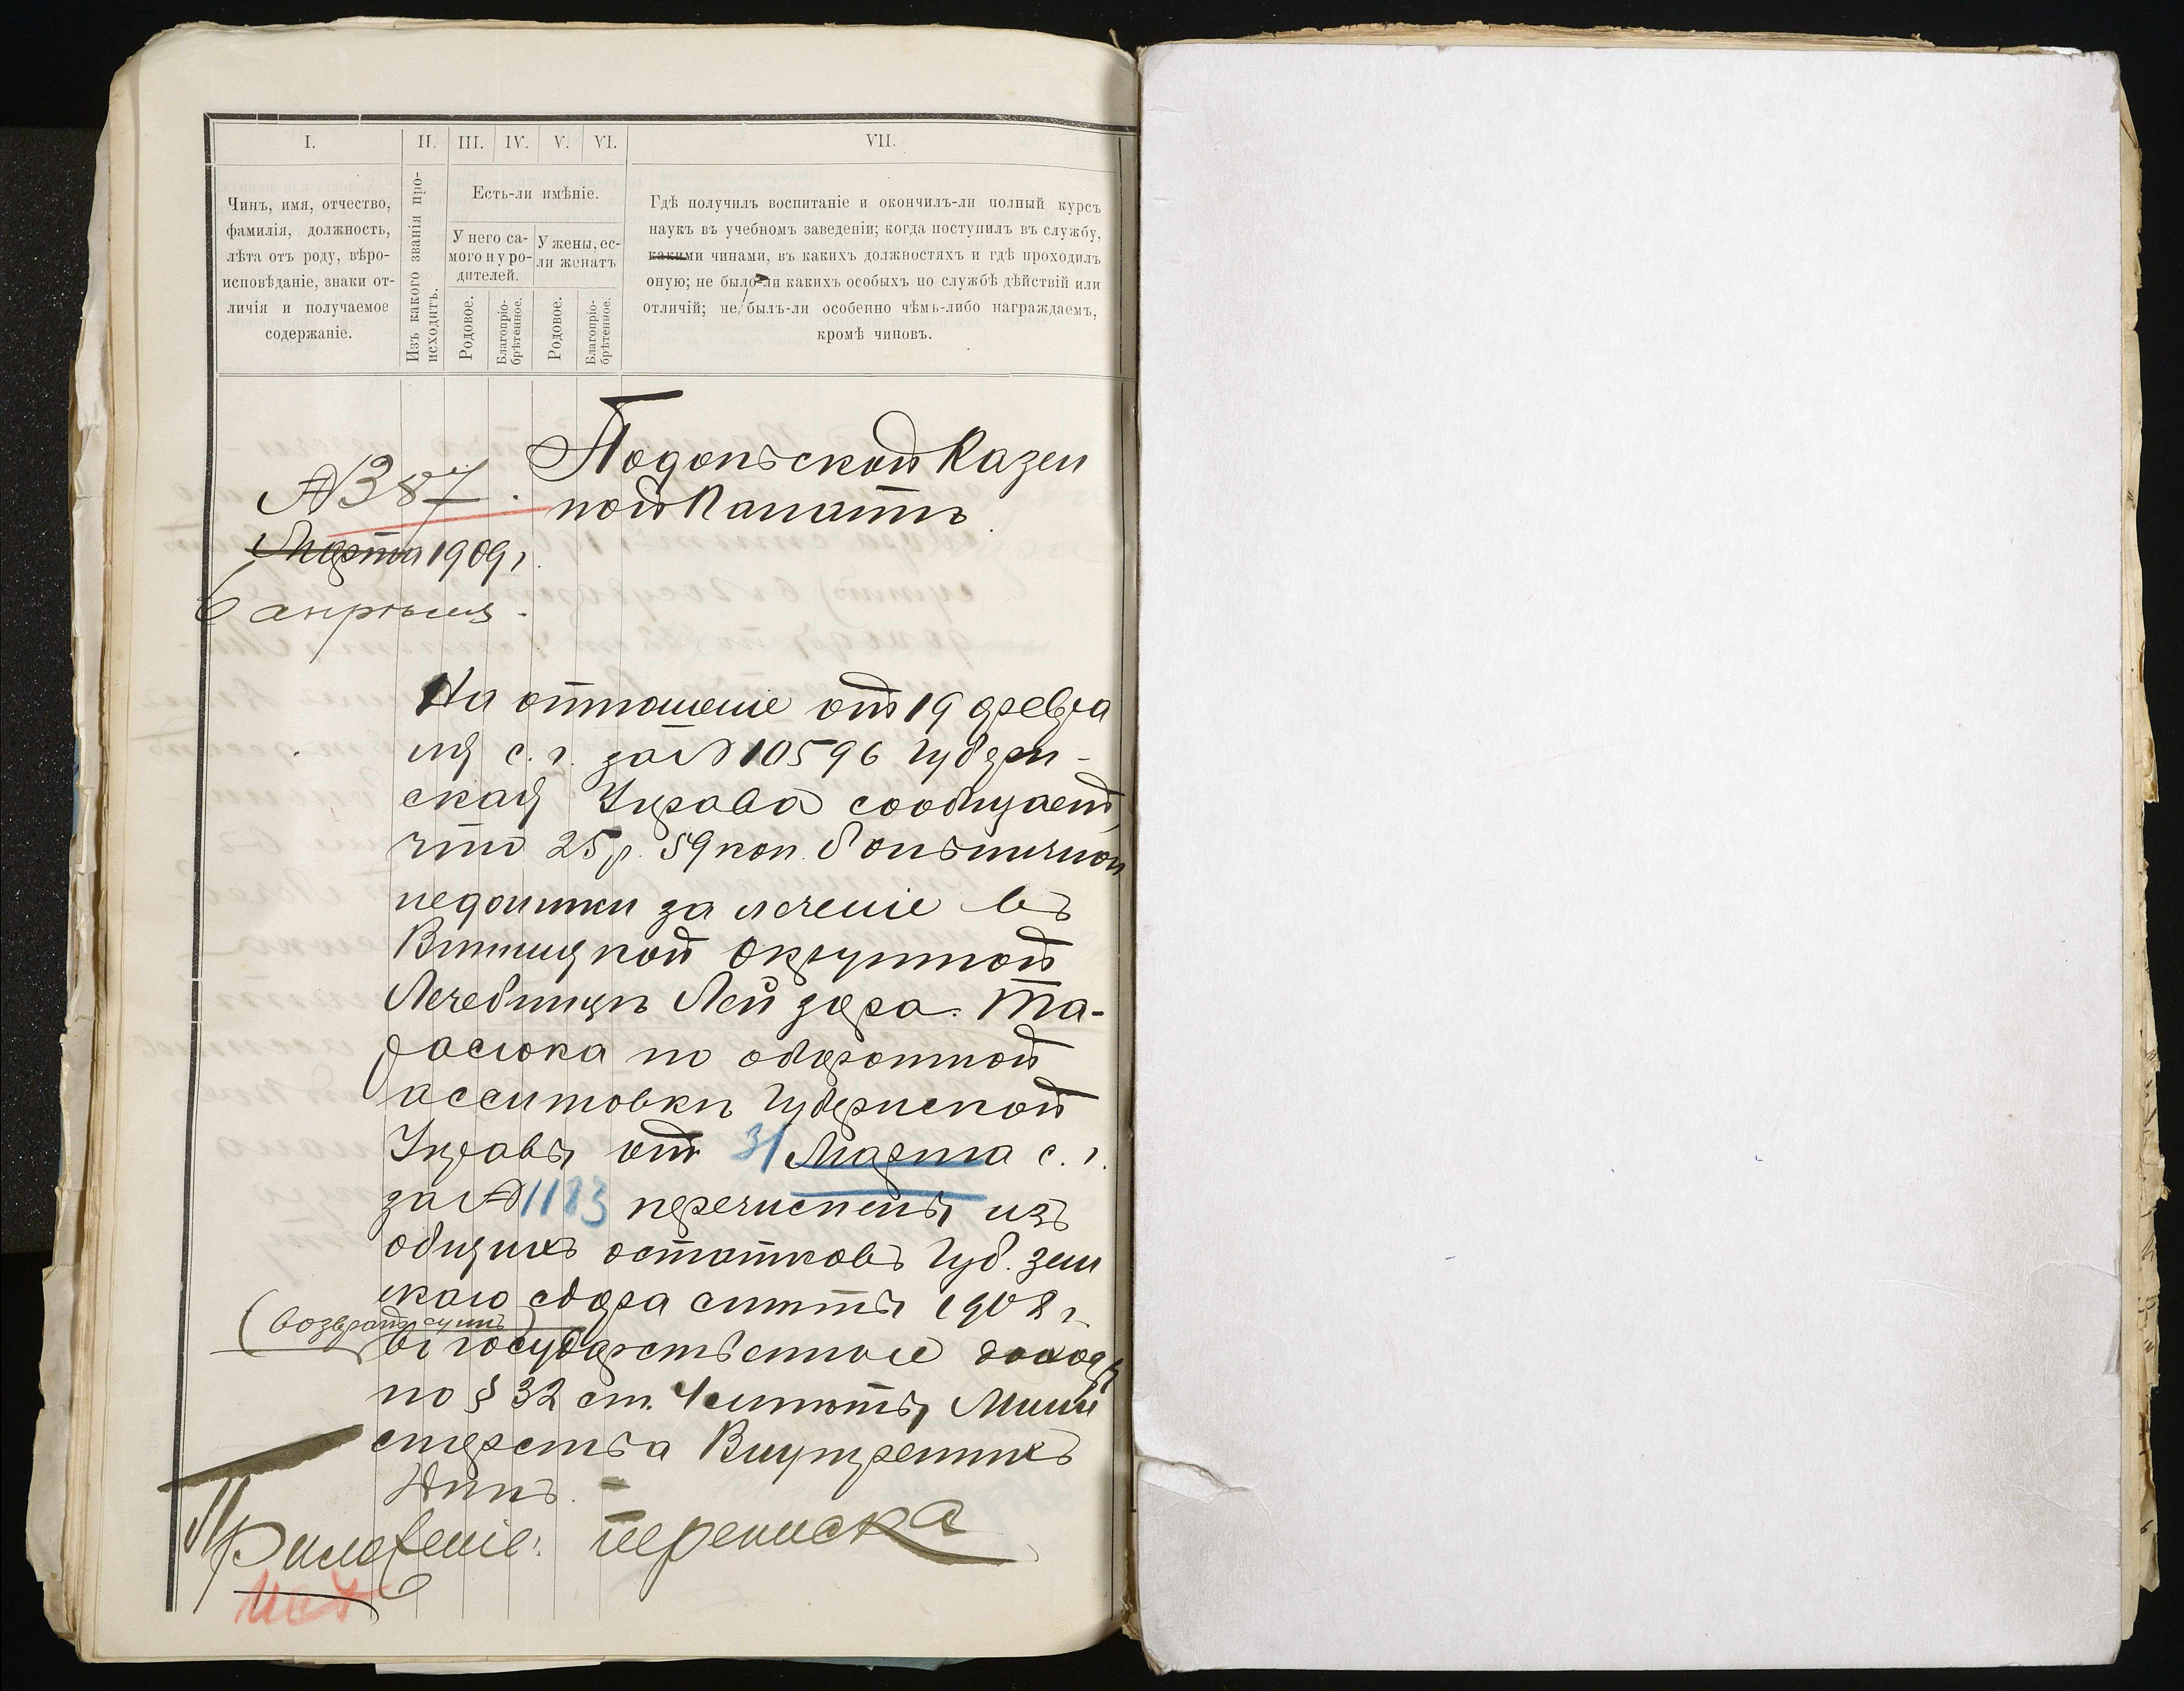 I.
II.
III.
IV.
V.
VI.
VII.
Чинъ, имя, отчество,
фамилія, должность,
лѣта отъ роду, вѣро-
исповѣданіе, знаки от-
личія и получаемое
содержаніе.
Изъ какого званія про-
исходитъ.
Есть-ли имѣніе.
У него са-
мого и у ро-
дителей.
У жены, ес-
ли женатъ
Родовое.
Благопріо-
брѣтенное.
Родовое.
Благопріо-
брѣтенное.
Гдѣ получилъ воспитаніе и окончилъ-ли полный курсъ
наукъ въ учебномъ заведеніи; когда поступилъ въ службу,
какими чинами, въ какихъ должностяхъ и гдѣ проходилъ
оную; не было-ли какихъ особыхъ по службѣ дѣйствій или
отличій; не былъ-ли особенно чѣмъ-либо награждаемъ,
кромѣ чиновъ.
Подольской Казен
ной Палатѣ
№ 387
Марта 1909 г.
6 апрѣля.
На отношеніе отъ 19 февра
ля с. г. за № 10596 Губерн-
ская Управа сообщаетъ,
что 25 р. 59 коп. больничной
недоимки за леченіе въ
Винницкой окружной
Лечебницѣ Лейзора Та-
расюка по оборотной
ассигновкѣ Губернской
Управы отъ 31 Марта с. г.
за № 1183 перечислены изъ
общихъ остатковъ Губ. зем
скаго сбора смѣты 1908 г.
(возвратъ суммъ)
въ государственные доходы
по § 32 ст. 4 смѣты Мини
стерства Внутреннихъ
Дѣлъ. –
Приложеніе: переписка